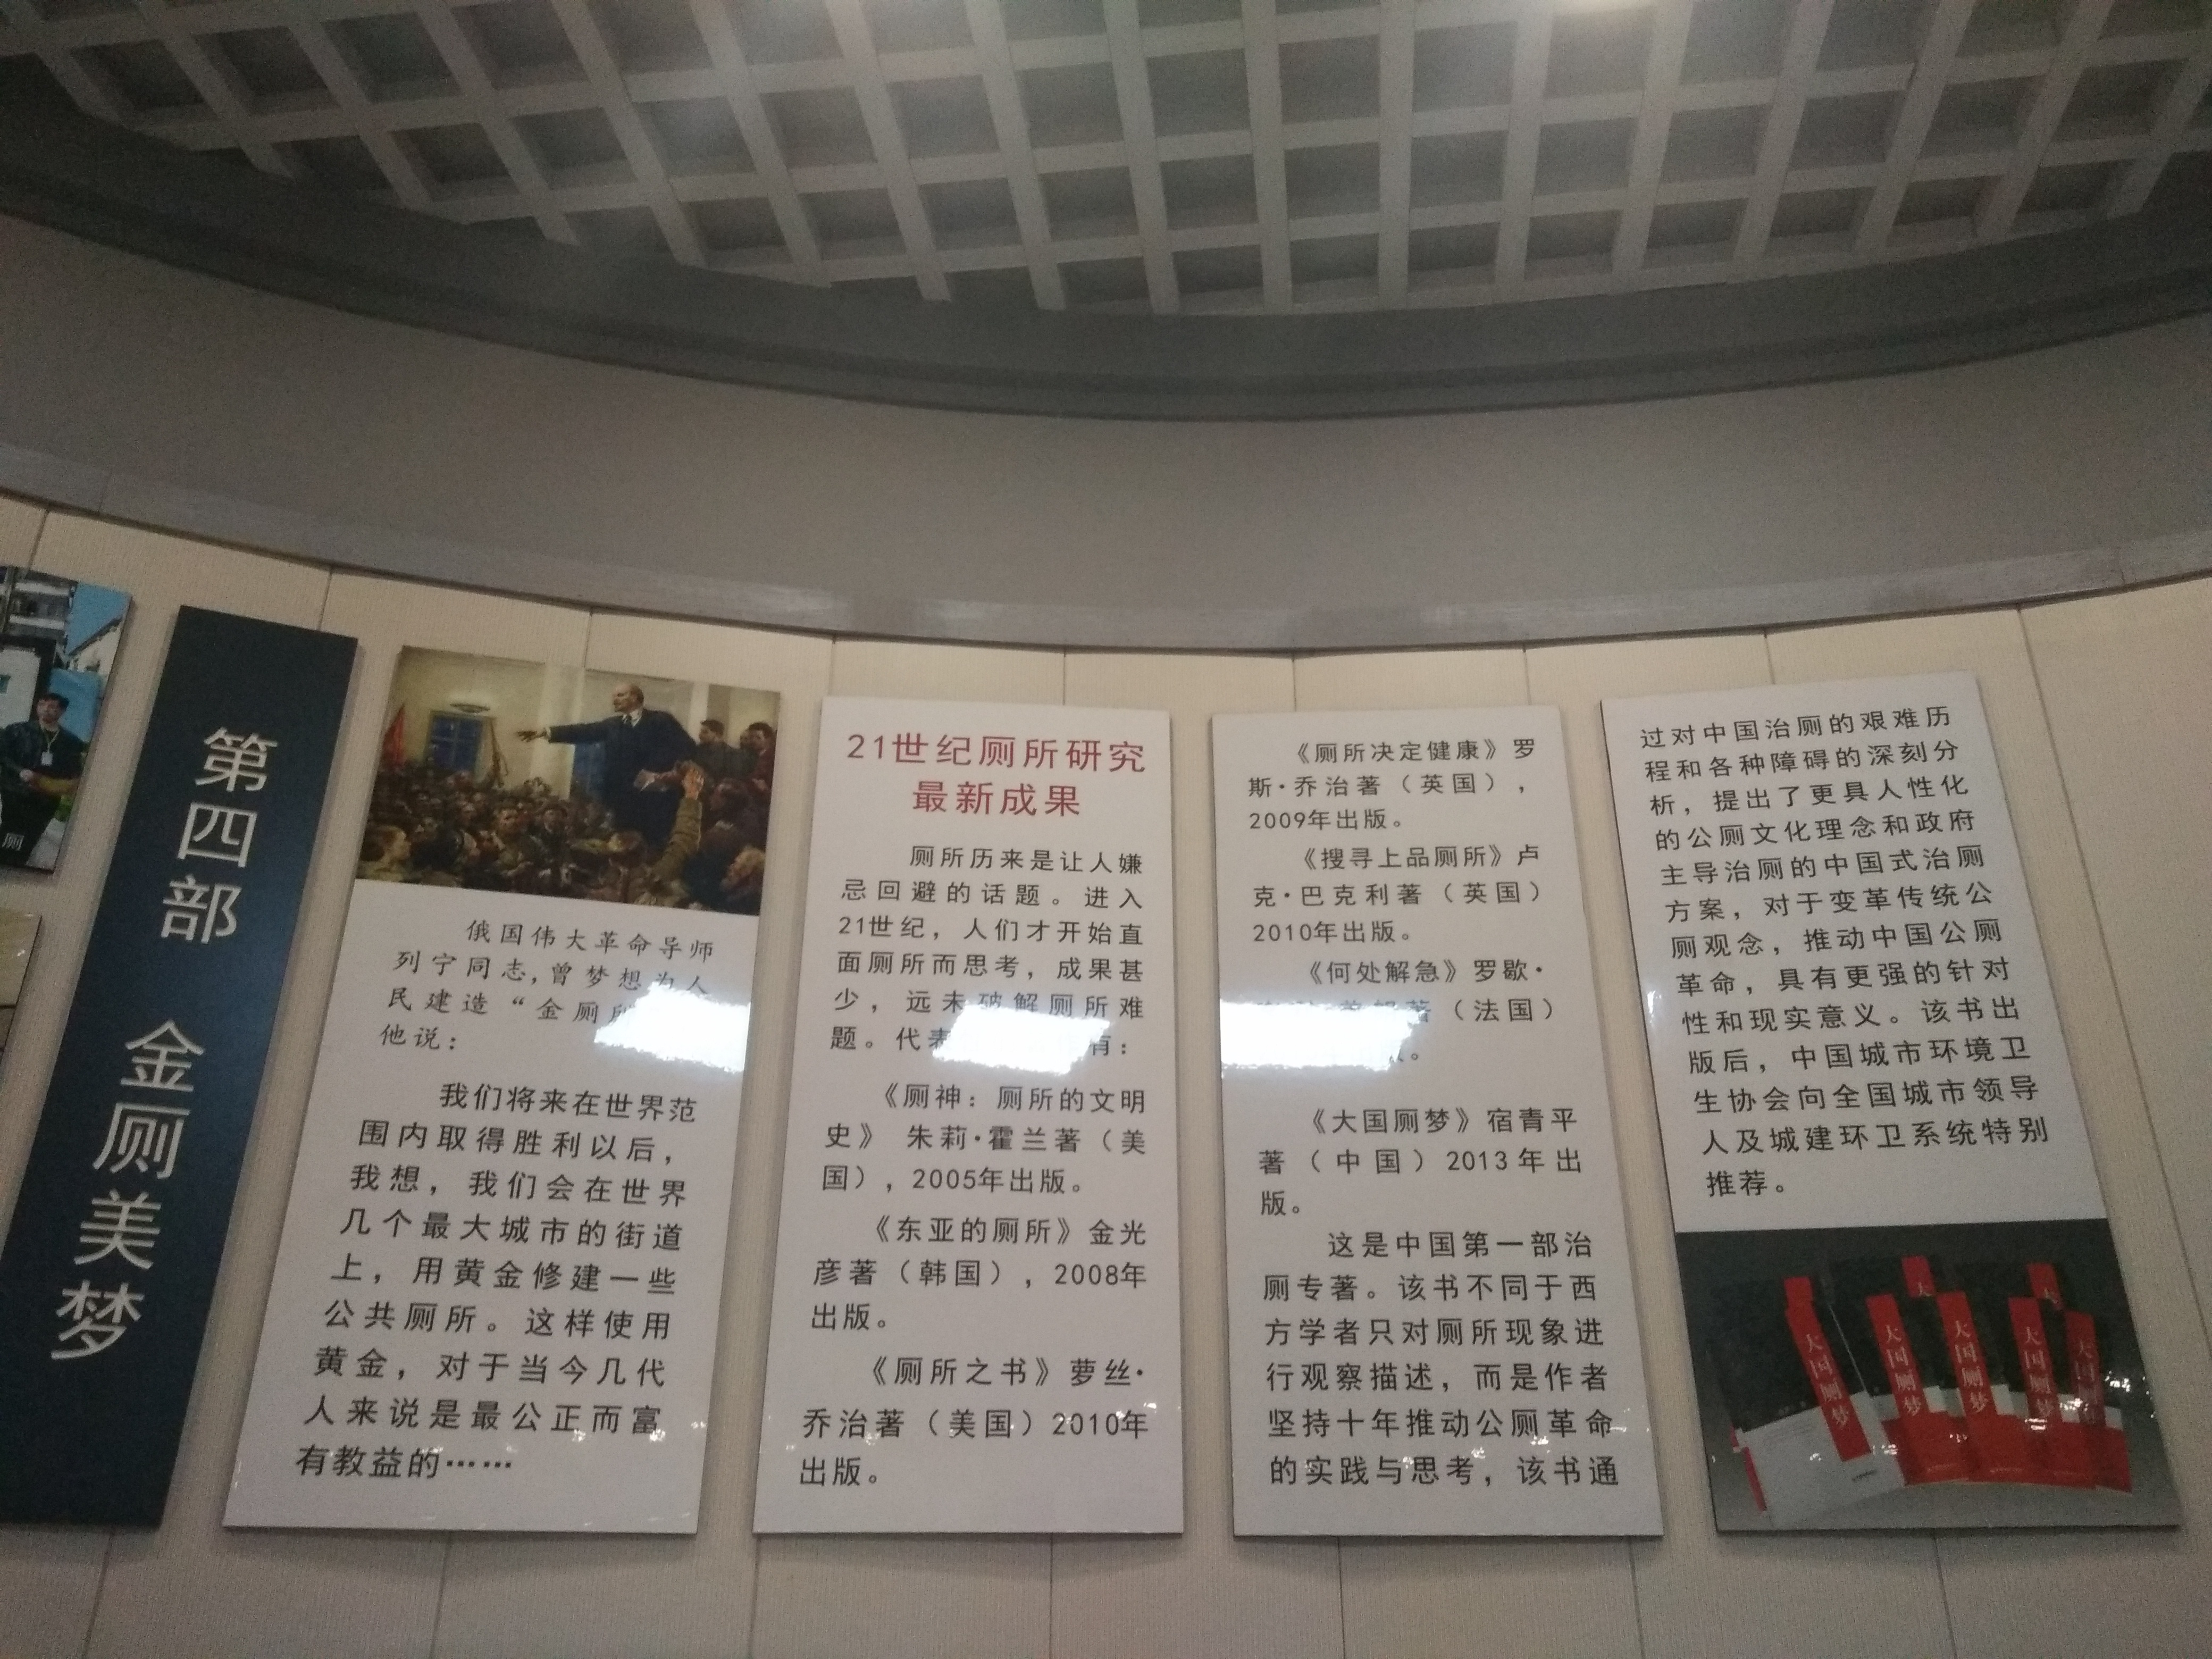 厕
第四部 金厕美梦
俄国伟大革命导师
列宁同志，曾梦想为人
民建造“金厕所
他说：
我们将来在世界范
围内取得胜利以后，
我想，我们会在世界
几个最大城市的街道
上，用黄金修建一些
公共厕所。这样使用
黄金，对于当今几代
人来说是最公正而富
有教益的……
21世纪厕所研究
最新成果
厕所历来是让人嫌
忌回避的话题。进入
21世纪，人们才开始直
面厕所而思考，成果甚
少，远未破解厕所难
题。代表 有：
《厕神：厕所的文明
史》 朱莉·霍兰著（美
国），2005年出版。
《东亚的厕所》金光
彦著（韩国），2008年
出版。
《厕所之书》萝丝·
乔治著（美国）2010年
出版。
《厕所决定健康》罗
斯·乔治著（英国），
2009年出版。
《搜寻上品厕所》卢
克·巴克利著（英国）
2010年出版。
《何处解急》罗歇·
著（法国）
。
《大国厕梦》宿青平
著（中国）2013年出
版。
这是中国第一部治
厕专著。该书不同于西
方学者只对厕所现象进
行观察描述，而是作者
坚持十年推动公厕革命
的实践与思考，该书通
过对中国治厕的艰难历
程和各种障碍的深刻分
析，提出了更具人性化
的公厕文化理念和政府
主导治厕的中国式治厕
方案，对于变革传统公
厕观念，推动中国公厕
革命，具有更强的针对
性和现实意义。该书出
版后，中国城市环境卫
生协会向全国城市领导
人及城建环卫系统特别
推荐。
大国厕梦
大国厕梦
大国厕梦
大国厕梦
大国厕梦
大
大